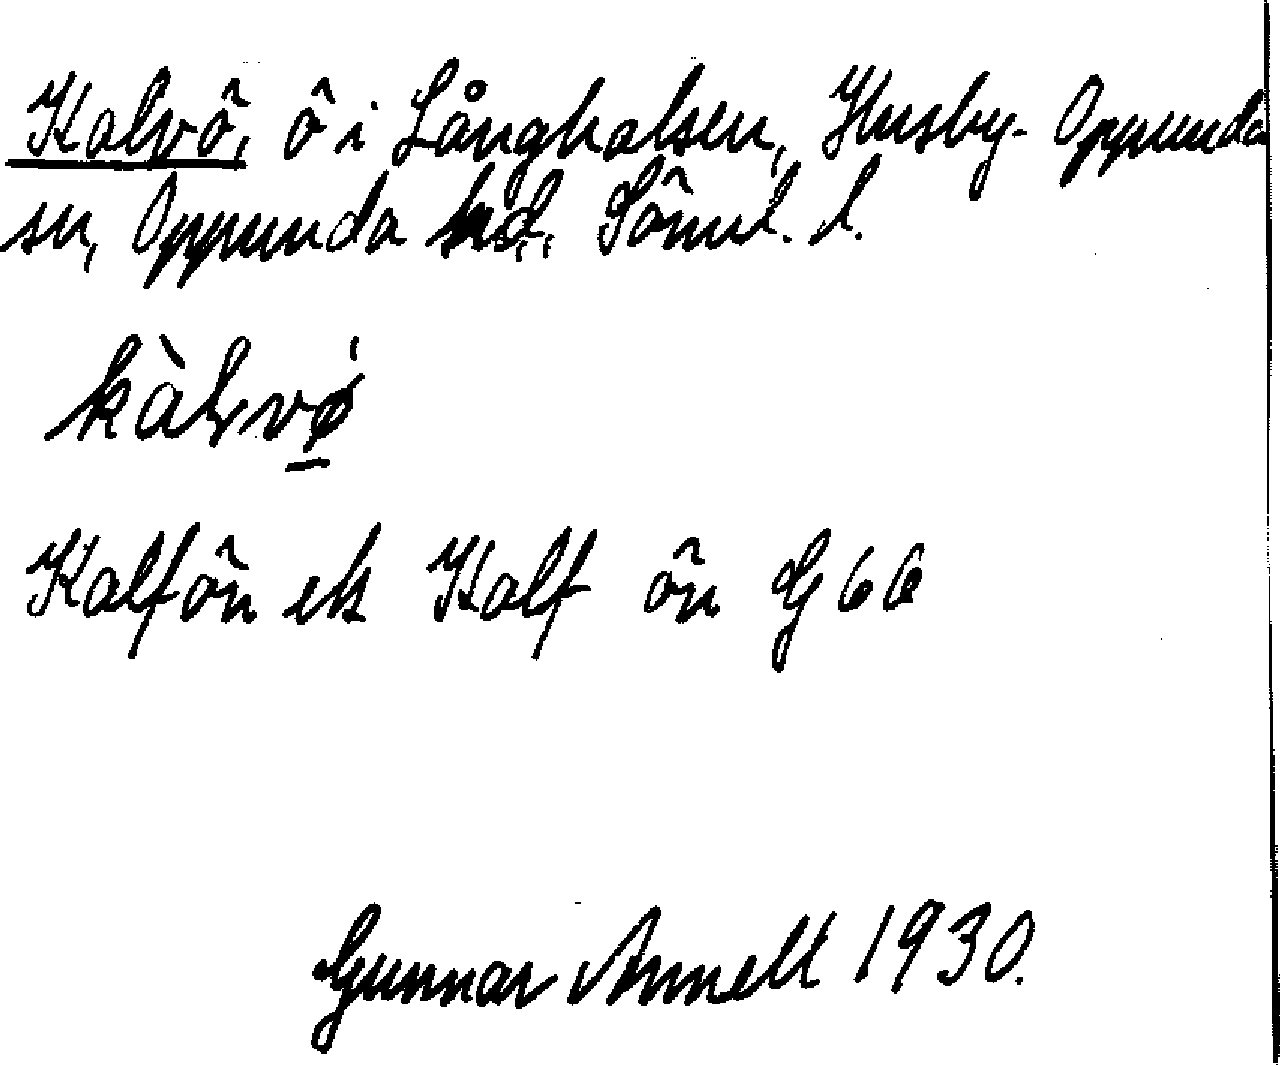 Kalvö, ö i Långhalsen, Husby-Oppunda
sn, Oppunda hd, Söml. l.
kàlvø
Kalfön ek Kalf ön G 66
Gunnar Annell 1930.